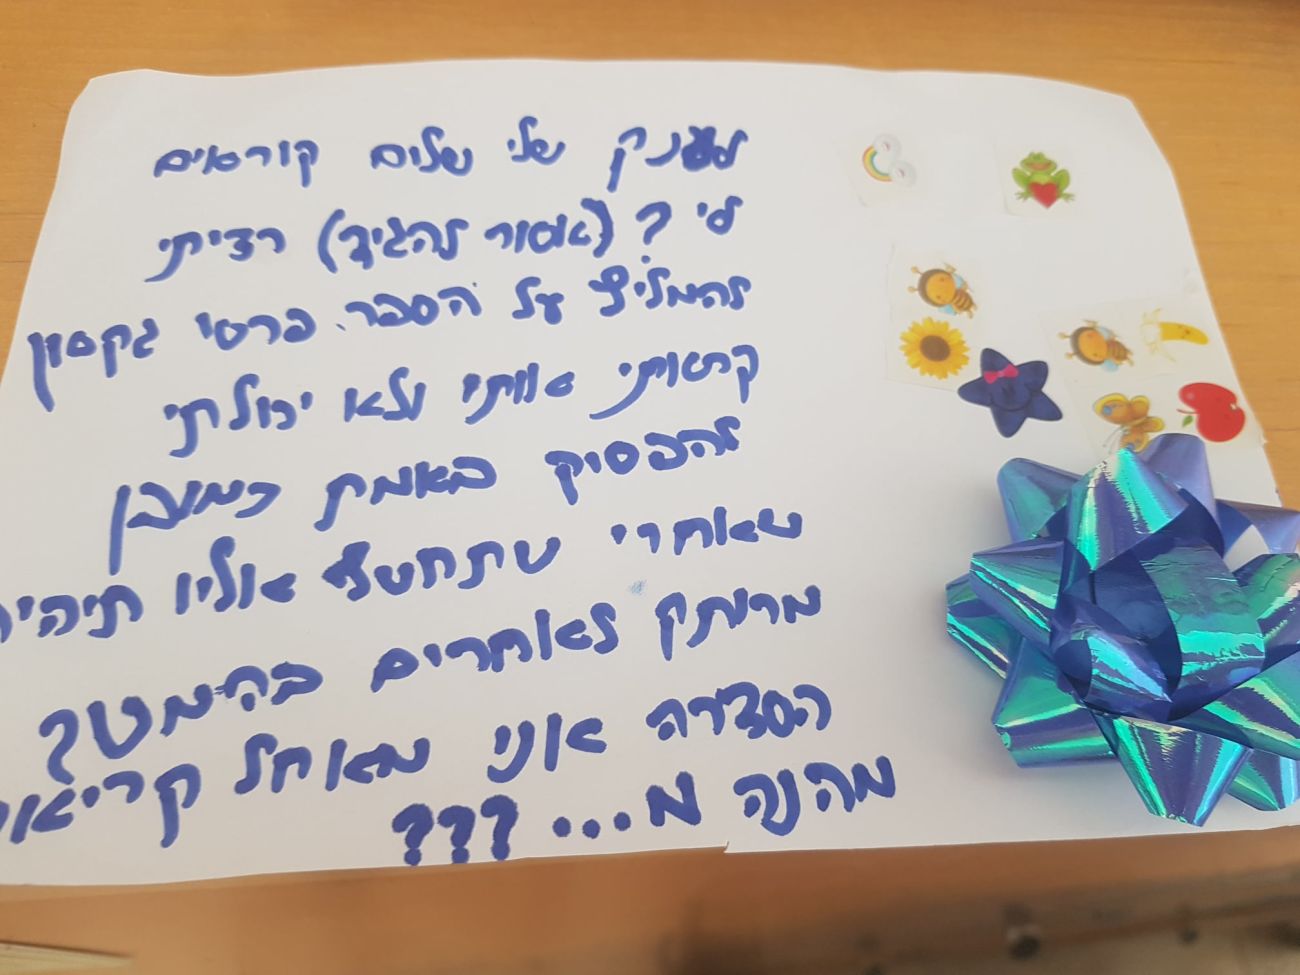 לענק שלי שלום קוראים
לי ? (אסור להגיד) רציתי
להמליץ על הספר פרסי גקסון
קראתי אותי ולא יכולתי
להפסיק באמת כמובן
שאחרי שתחטף אליו תיהיה
מרותק לאחרים בהמשך
הסדרה אני מאחל קריאה
מהנה מ... ???